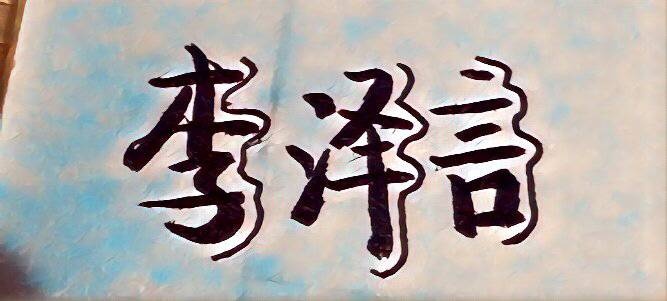 李泽言